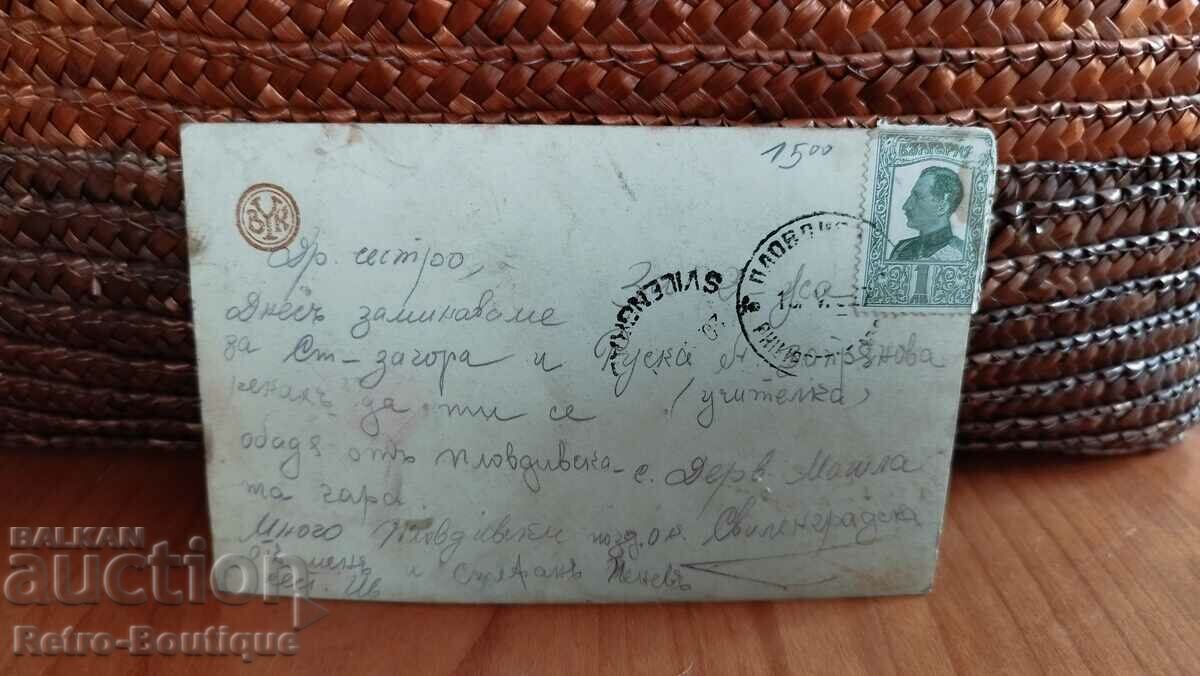 1500
БЪЛГАРИЯ
1
BYK
ПЛОВДИВ
SVILENGRAD
Др. сестро,
Г-ца
Днесъ заминаваме
за Ст-Загора и
Руска
да ти се
(учителка)
обадя отъ Пловдивска-
та гара.
с. Дерв. Могила
Много Пловдивски позд.
ок. Свиленградска
отъ менъ и Стефанъ Пеневъ
BALKAN
auction
Retro-Boutique